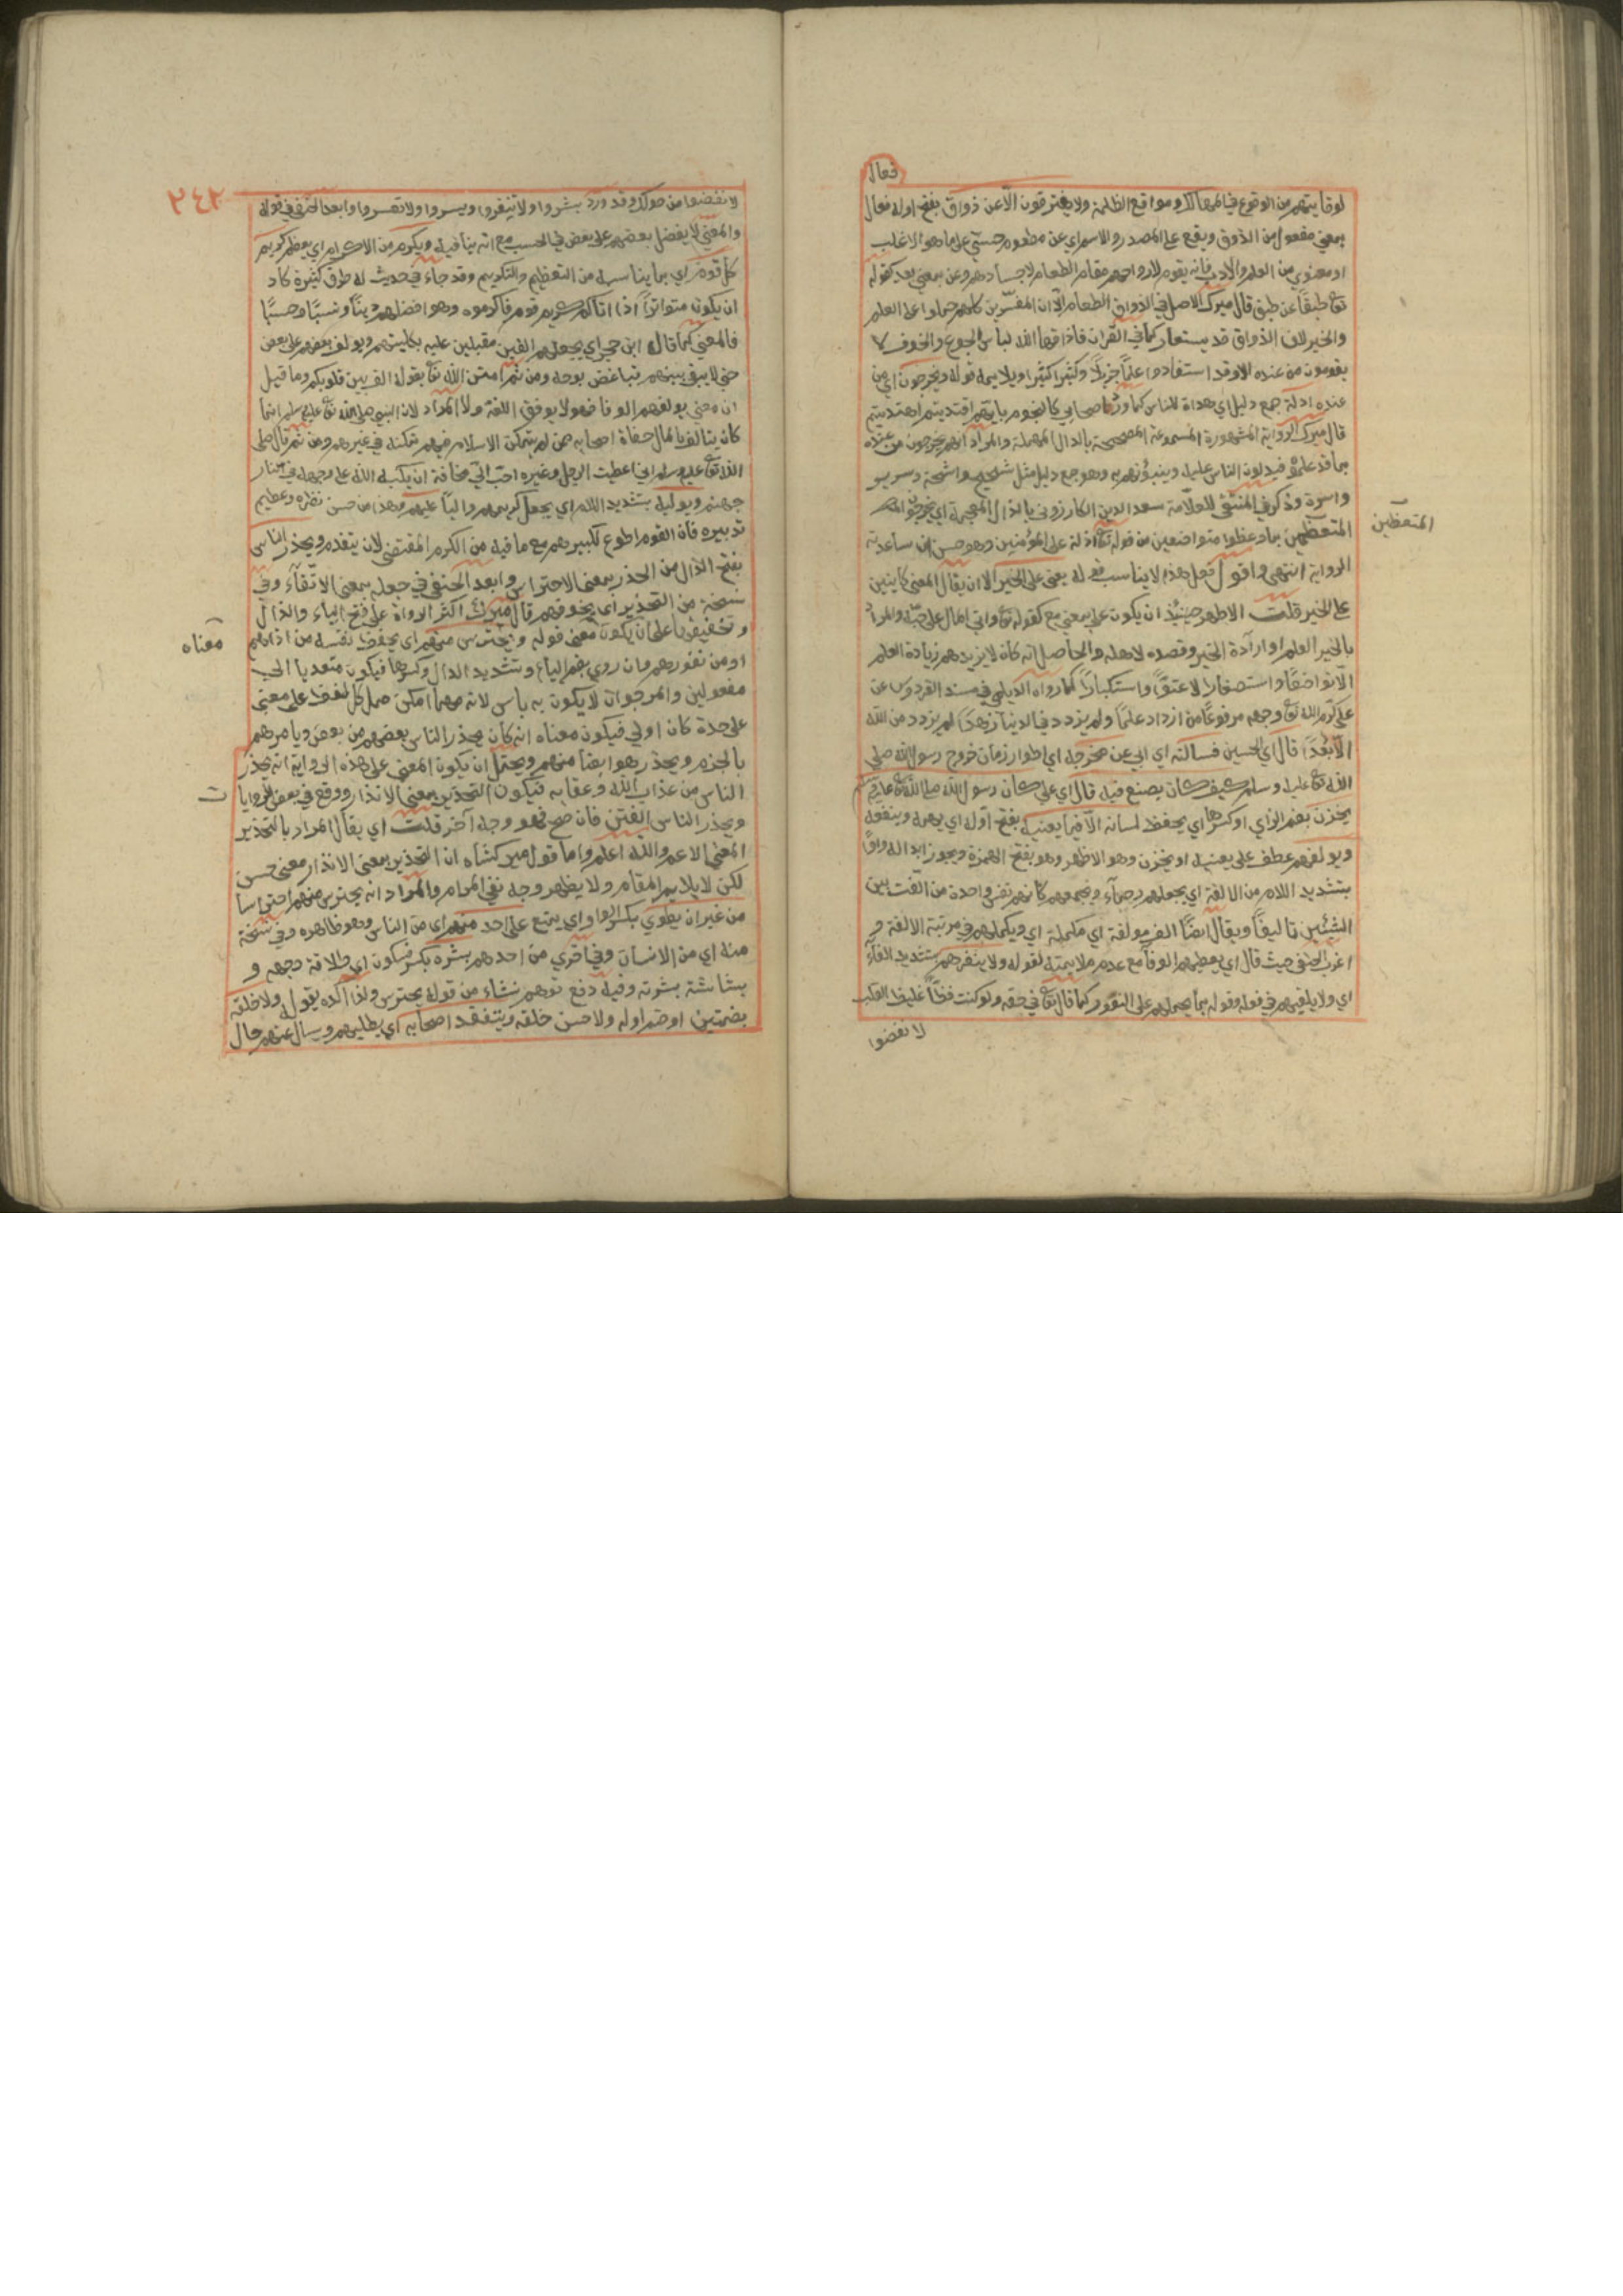 فعال
لوقايتهم من الوقوع في المهالك ومواقع الظلمة ولا يفترقون الا عن ذواق بفتح اوله فعال
بمعنى مفعول من الذوق ويقع على المصدر والاسم اي عن مطعوم حسي على ما هو الاغلب
او معنوي من العلم والادب فانه يقوم لارواحهم مقام الطعام لاجسادهم وعن بمعنى بعد كقوله
تع طبقا عن طبق قال ميرك الاصل في الذواق الطعام الا ان المفسرين كلهم حملوا على العلم
والخير لان الذواق قد يستعار كما في القران فاذاقها الله لباس الجوع والخوف لا
يقومون من عنده الا وقد استفادوا علما جزيلا وكثيرا ويلايمه قوله ويخرجون اي من
عنده ادلة جمع دليل اي هداة للناس كما ورد اصحابي كالنجوم بايهم اقتديتم اهتديتم
قال ميرك الرواية المشهورة المسموعة المصححة بالدال المهملة والمراد انهم يخرجون من عنده
بما قد علموه فيدلون الناس عليه وينبؤنهم به وهو جمع دليل مثل شحيح واشحة وسرير
واسرة وذكر في المنتقى للعلامة سعد الدين الكازروني بالذال المعجمة اي يخرجون
المتعظين بما وعظوا متواضعين من قوله تع اذلة على المؤمنين وهو حسن ان ساعدته
الرواية انتهى واقول فعل هذا لا يناسب قوله يعنى على الخير الا ان يقال المعنى كاينين
على الخير قلت الاظهر حينئذ ان يكون على بمعنى مع كقوله تع واتى المال على حبه والمراد
بالخير العلم او ارادة الخير وقصده لاهله والحاصل انه كان لا يزيدهم زيادة العلم
الا تواضعا واستصغارا لا عتوا واستكبارا كما رواه الديلمي في مسند الفردوس عن
علي كرم الله تع وجهه مرفوعا من ازداد علما ولم يزدد في الدنيا زهدا لم يزدد من الله
الا بعدا قال اي الحسين فسالته اي ابي عن مخرجه اي اطوار زمان خروج رسول الله صلى
الله تع عليه وسلم كيف كان يصنع فيه قال اي علي كان رسول الله صلى الله تع عليه وسلم
يخزن بضم الزاي او كسرها اي يحفظ لسانه الا فيما يعنيه بفتح اوله اي يهمه وينفعه
ويولفهم عطف على يعنيه او يخزن وهو الاظهر وهو بفتح الهمزة ويجوز ابداله واوا
بتشديد اللام من الالفة اي يجعلهم رحماء ويجمعهم كانهم نفس واحدة من الفت بين
الشيئين تاليفا ويقال ايضا الف مولفة اي مكملة اي ويكملهم في مرتبة الالفة و
اغرب الحنفي حيث قال اي يعطيهم الوفا مع عدم ملايمته لقوله ولا ينفرهم بتشديد الفاء
اي ولا يلقيهم في فعله وقوله بما يحملهم على النفور كما قال تع في حقه ولو كنت فظا غليظ القلب
لا نفضوا
المتعظين
٢٤٢
لا نفضوا من حولك وقد ورد بشروا ولا تنفروا ويسروا ولا تعسروا وابعد الحنفي في قوله
والمعنى لا يفضل بعضهم على بعض في الحسب مع انه ينافيه ويكرم من الاكرام اي يعظم كريم
كل قوم اي بما يناسبه من التعظيم والتكريم وقد جاء في حديث له طرق كثيرة كاد
ان يكون متواترا اذا اتاكم كريم قوم فاكرموه وهو افضلهم دينا ونسبا وحسبا
فالمعنى كما قال ابن حجر اي يجعلهم الفين مقبلين عليه بكليتهم ويولف بعضهم على بعض
حتى لا يبقى بينهم تباغض بوجه ومن ثم امتن الله تع بقوله الف بين قلوبكم وما قيل
ان معنى يولفهم الوفا فهو لا يوفق اللغة ولا المراد لان النبي صلى الله تع عليه وسلم انما
كان يتالف بالمال جفاة اصحابه ممن لم يتمكن الاسلام فيهم تمكنه في غيرهم ومن ثم قال صلى
الله تع عليه وسلم اني اعطيت الرجل وغيره احب الي مخافة ان يكبه الله على وجهه في نار
جهنم ويوليه بتشديد اللام اي يجعل كريمهم واليا عليهم وهذا من حسن نظره وعظيم
تدبيره فان القوم اطوع لكبيرهم مع ما فيه من الكرم المقتضى لان يتقدم ويحذر الناس
بفتح الذال من الحذر بمعنى الاحتراس وابعد الحنفي في جعله بمعنى الاتقاء وفي
نسخة من التحذير اي يخوفهم قال ميرك اكثر الرواة على فتح الياء والذال
وتخفيفها على ان يكون معنى قوله ويحترس منهم اي يحفظ نفسه من اذاهم
او من نفورهم وان روي بضم الياء وتشديد الدال وكسرها فيكون متعديا الى
مفعولين والمرجوان لا يكون به باس لانه مهما امكن حمل كل لفظ على معنى
على حدة كان اولى فيكون معناه انه كان يحذر الناس بعضهم من بعض ويامرهم
بالحزم ويحذر هو ايضا منهم ويحتمل ان يكون المعنى على هذه الرواية انه يحذر
الناس من عذاب الله وعقابه فيكون التحذير بمعنى الانذار ووقع في بعض الروايات
ويحذر الناس الفتن فان صح فهو وجه آخر قلت اي يقال المراد بالتحذير
المعنى الاعم والله اعلم واما قول ميركشاه ان التحذير بمعنى الانذار معنى حسن
لكن لا يلايم المقام ولا يظهر وجه نفي المرام والمراد انه يحترس منهم احتراسا
من غير ان يطوي بكسر الواو اي يمنع على احد منهم اي من الناس وهو ظاهره وفي نسخة
منه اي من الانسان وفي اخرى من احدهم بشره بكسر فسكون اي طلاقة وجهه و
بشاشة بشرته وفيه دفع توهم نشاء من قوله يحترس ولذا اكده بقوله ولا خلقه
بضمتين او ضم اوله ولا حسن خلقه ويتفقد اصحابه اي يطلبهم ويسال عنهم حال
معناه